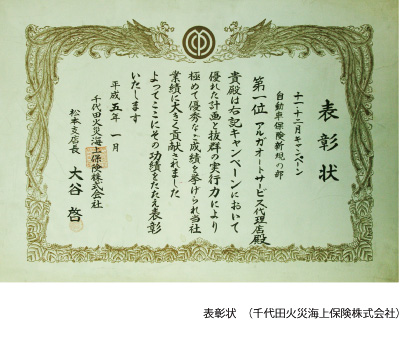 表彰状
十一・十二月キャンペーン
自動車保険新規の部
第一位 アルガオートサービス代理店殿
貴殿は右記キャンペーンにおいて
優れた計画と抜群の実行力により
極めて優秀な成績を挙げられ当社
業績に大きく貢献されました
よってここにその功績をたたえ表彰
いたします
平成五年一月
千代田火災海上保険株式会社
松本支店長 大谷 啓
表彰状 (千代田火災海上保険株式会社)